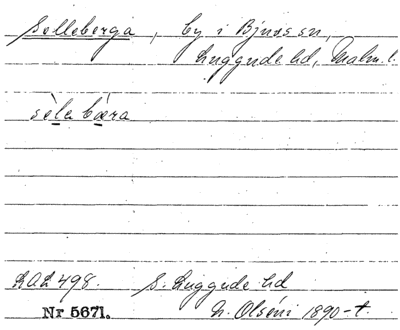 Selleberga, by i Bjuvs sn,
Luggude hd, Malm. l.
sèla bæra
LAL 498. S. Luggude hd
Nr 5671. N. Olséni 1890-t.